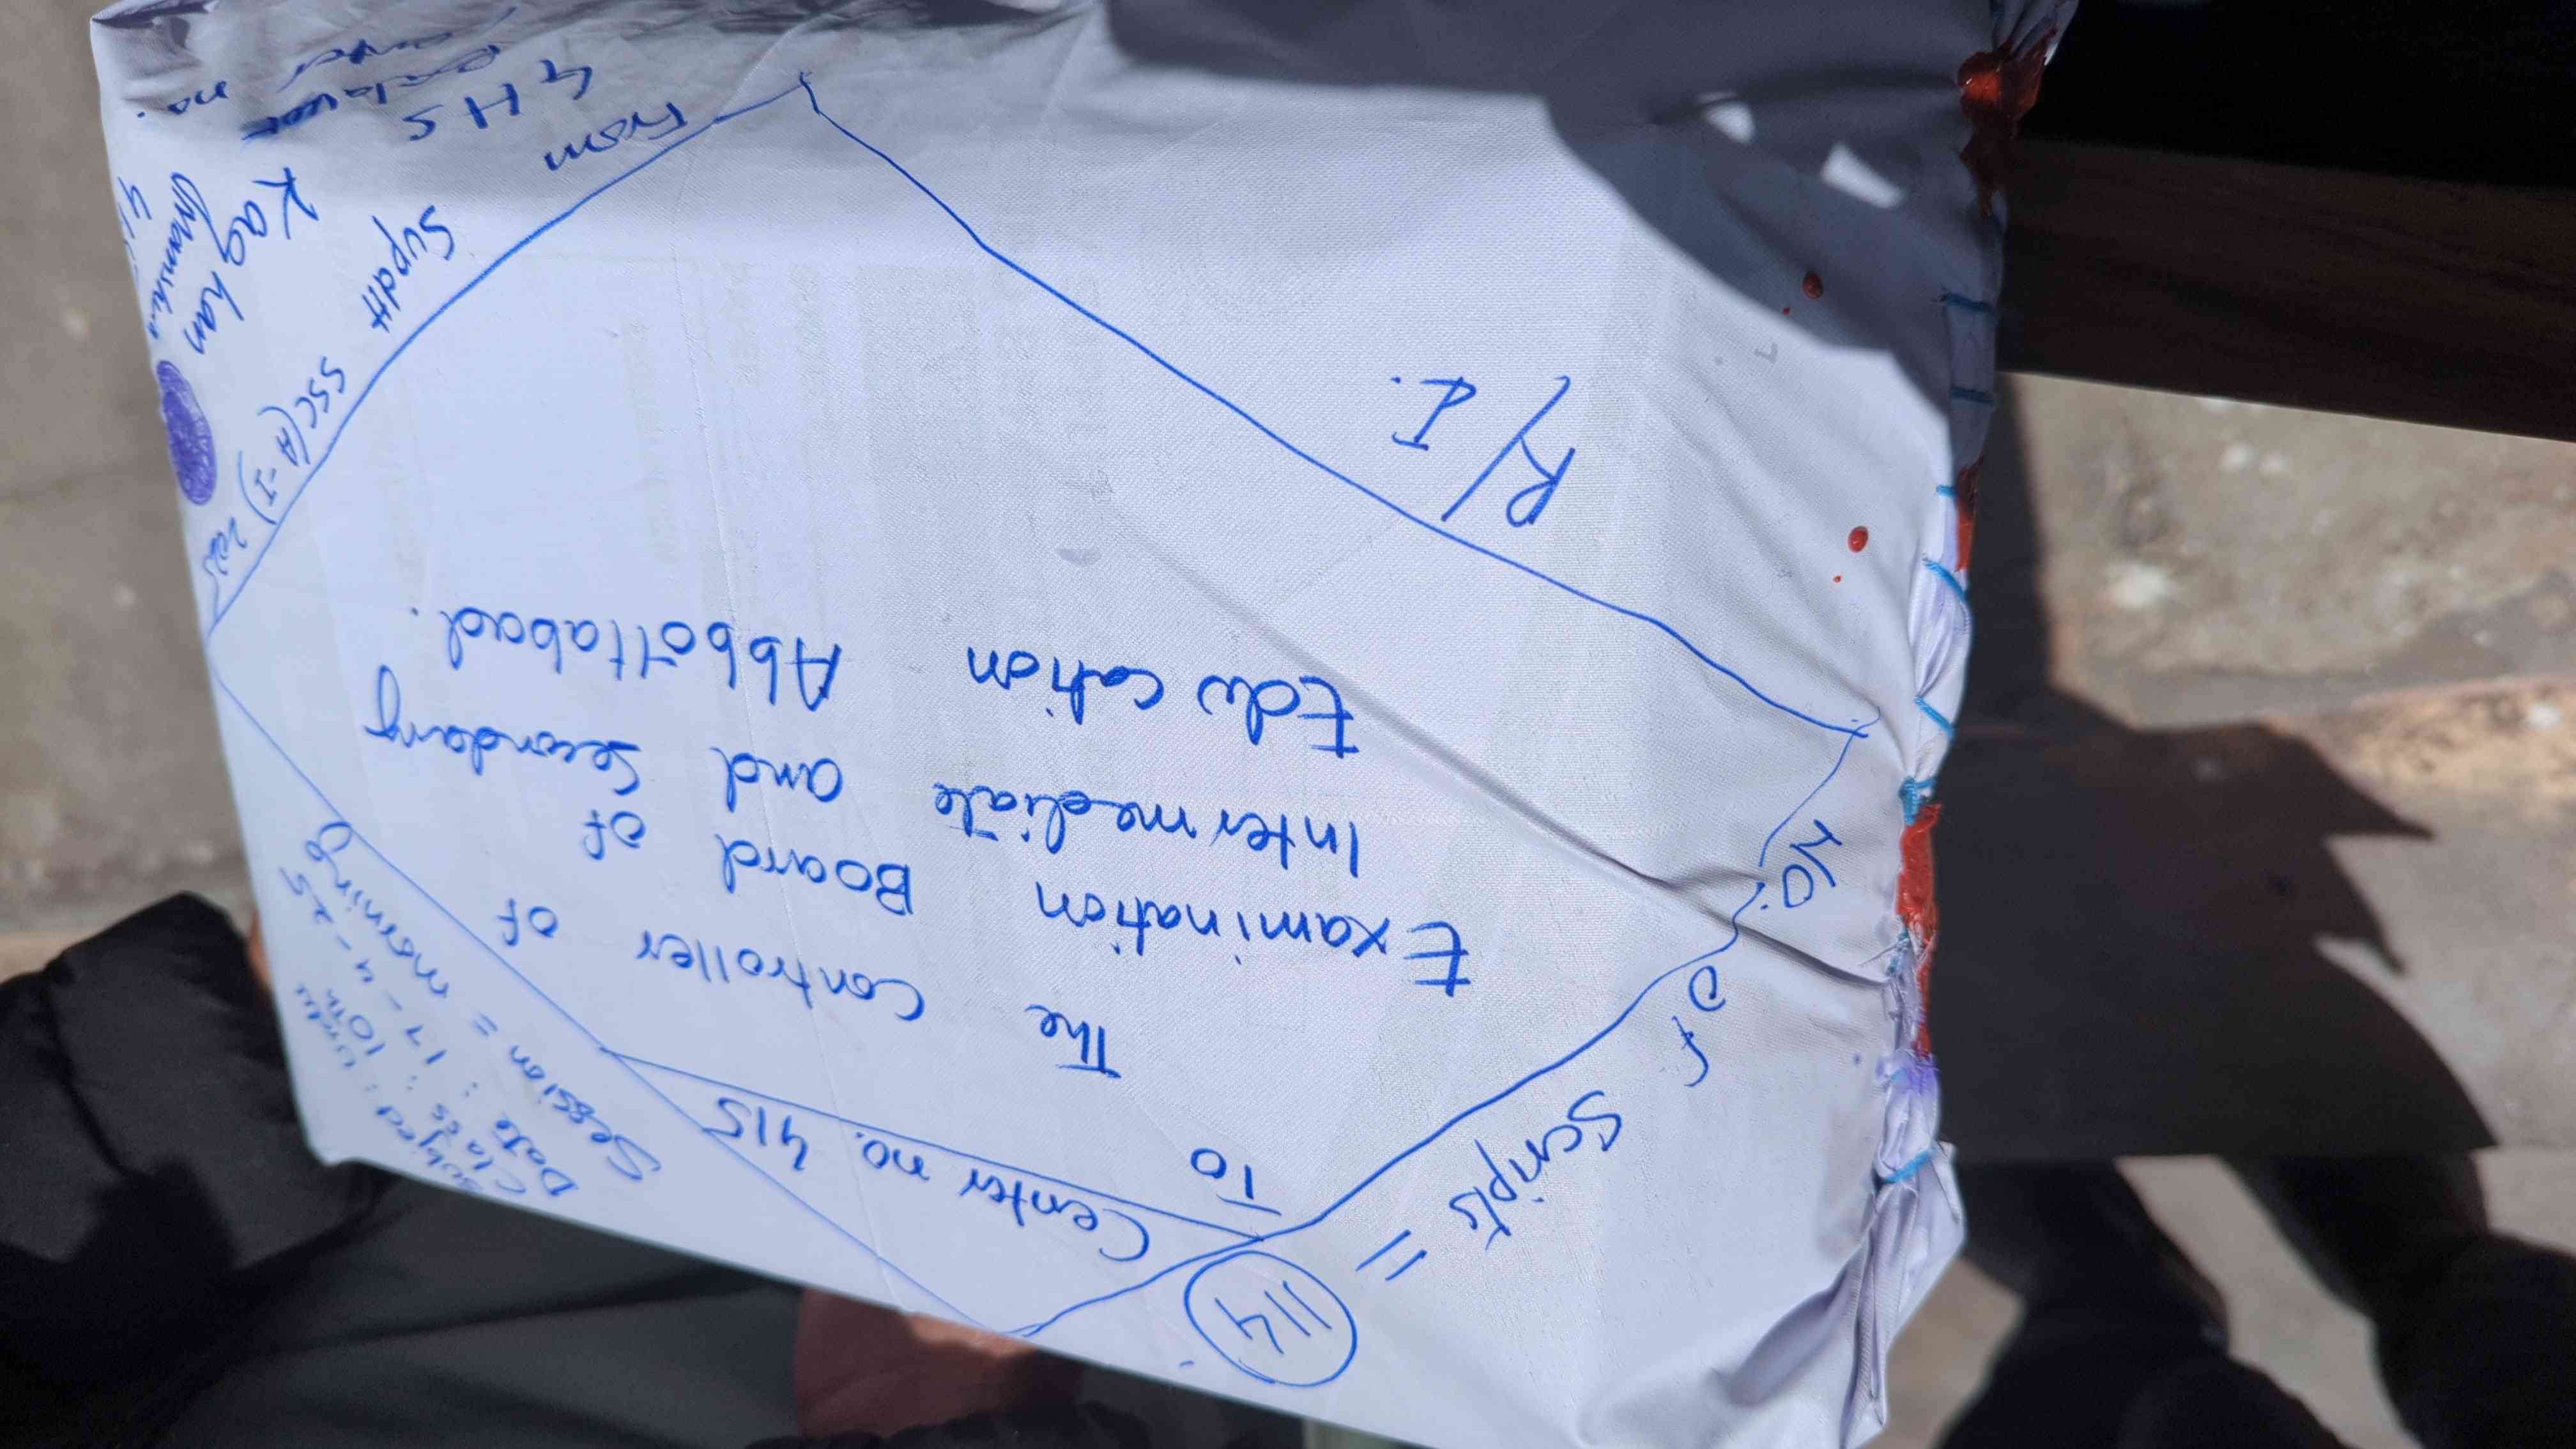 No. of Scripts = 114
R/I.
Center no. 415
To
The Controller of
Examination Board of
Intermediate and Secondary
Education Abbottabad.
Subject: Urdu
Class: 10th
Date: 17-4-25
Session = morning
From
Supdtt
SSC(A-I) 2025
GHS
Kaghan